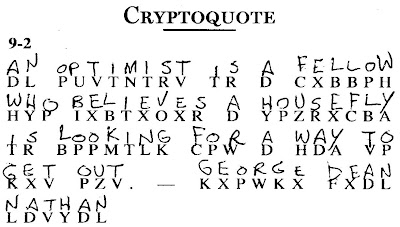 CRYPTOQUOTE
9-2
AN OPTIMIST IS A FELLOW
DL PUVTNTRV TR D CXBBPH
WHO BELIEVES A HOUSEFLY
HYP IXBTXOXR D YPZRXCBA
IS LOOKING FOR A WAY TO
TR BPPMTLK CPW D HDA VP
GET OUT GEORGE DEAN
KXV PZV. — KXPWKX FXDL
NATHAN
LDVYDL